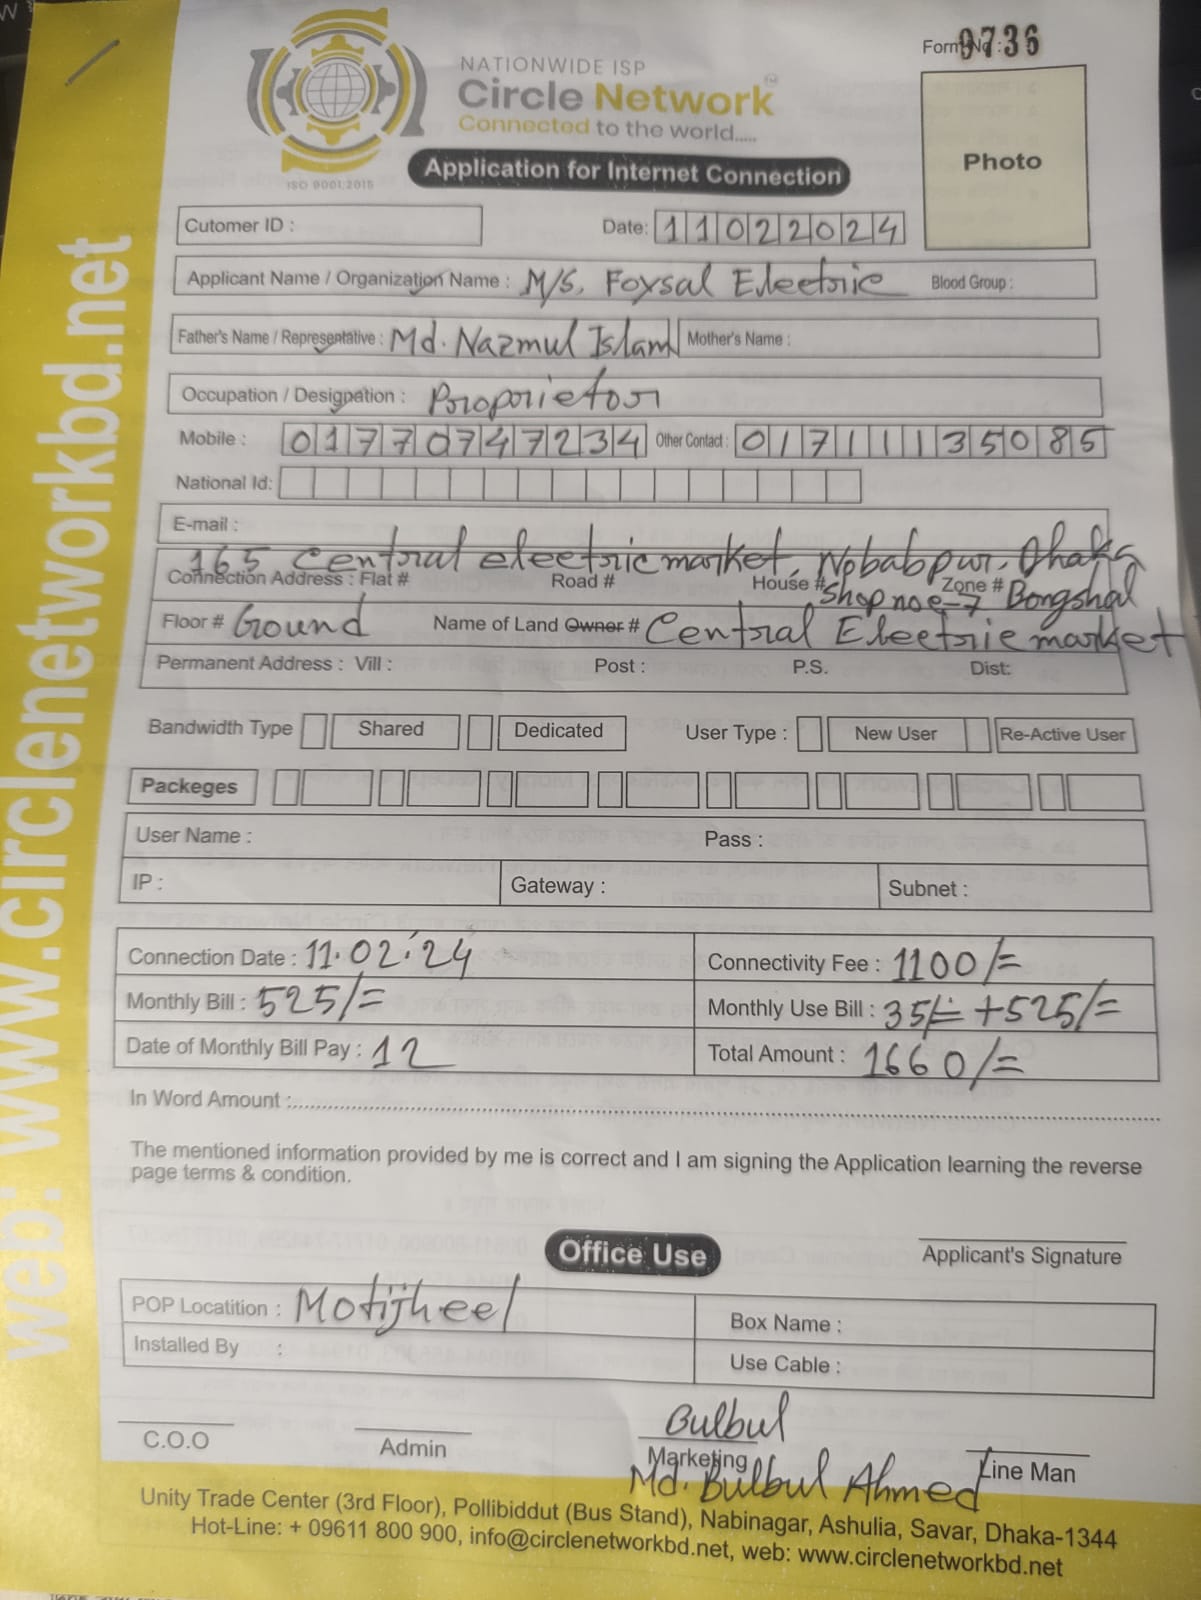 Form No : 9736
NATIONWIDE ISP
Circle Network
Connected to the world.....
ISO 9001:2015
Application for Internet Connection
Photo
Cutomer ID :
Date: 11022024
Applicant Name / Organization Name : M/S. Foysal Electric Blood Group :
Father's Name / Representative : Md. Nazmul Islam Mother's Name :
Occupation / Designation : Proprietor
Mobile : 01770747234 Other Contact : 01711135085
National Id:
E-mail :
165 Central electric market, Nobabpur, Dhaka
Connection Address : Flat # Road # House # Zone #
Shop no-7 Bongshal
Floor # Ground Name of Land Owner # Central Electric market
Permanent Address : Vill : Post : P.S. Dist:
Bandwidth Type Shared Dedicated User Type : New User Re-Active User
Packeges
User Name : Pass :
IP : Gateway : Subnet :
Connection Date : 11.02.24 Connectivity Fee : 1100/=
Monthly Bill : 525/= Monthly Use Bill : 35/= +525/=
Date of Monthly Bill Pay : 12 Total Amount : 1660/=
In Word Amount :
The mentioned information provided by me is correct and I am signing the Application learning the reverse
page terms & condition.
Office Use
Applicant's Signature
POP Locatition : Motijheel Box Name :
Installed By : Use Cable :
Bulbul
C.O.O Admin Marketing Line Man
Md. Bulbul Ahmed
Unity Trade Center (3rd Floor), Pollibiddut (Bus Stand), Nabinagar, Ashulia, Savar, Dhaka-1344
Hot-Line: + 09611 800 900, info@circlenetworkbd.net, web: www.circlenetworkbd.net
web: www.circlenetworkbd.net